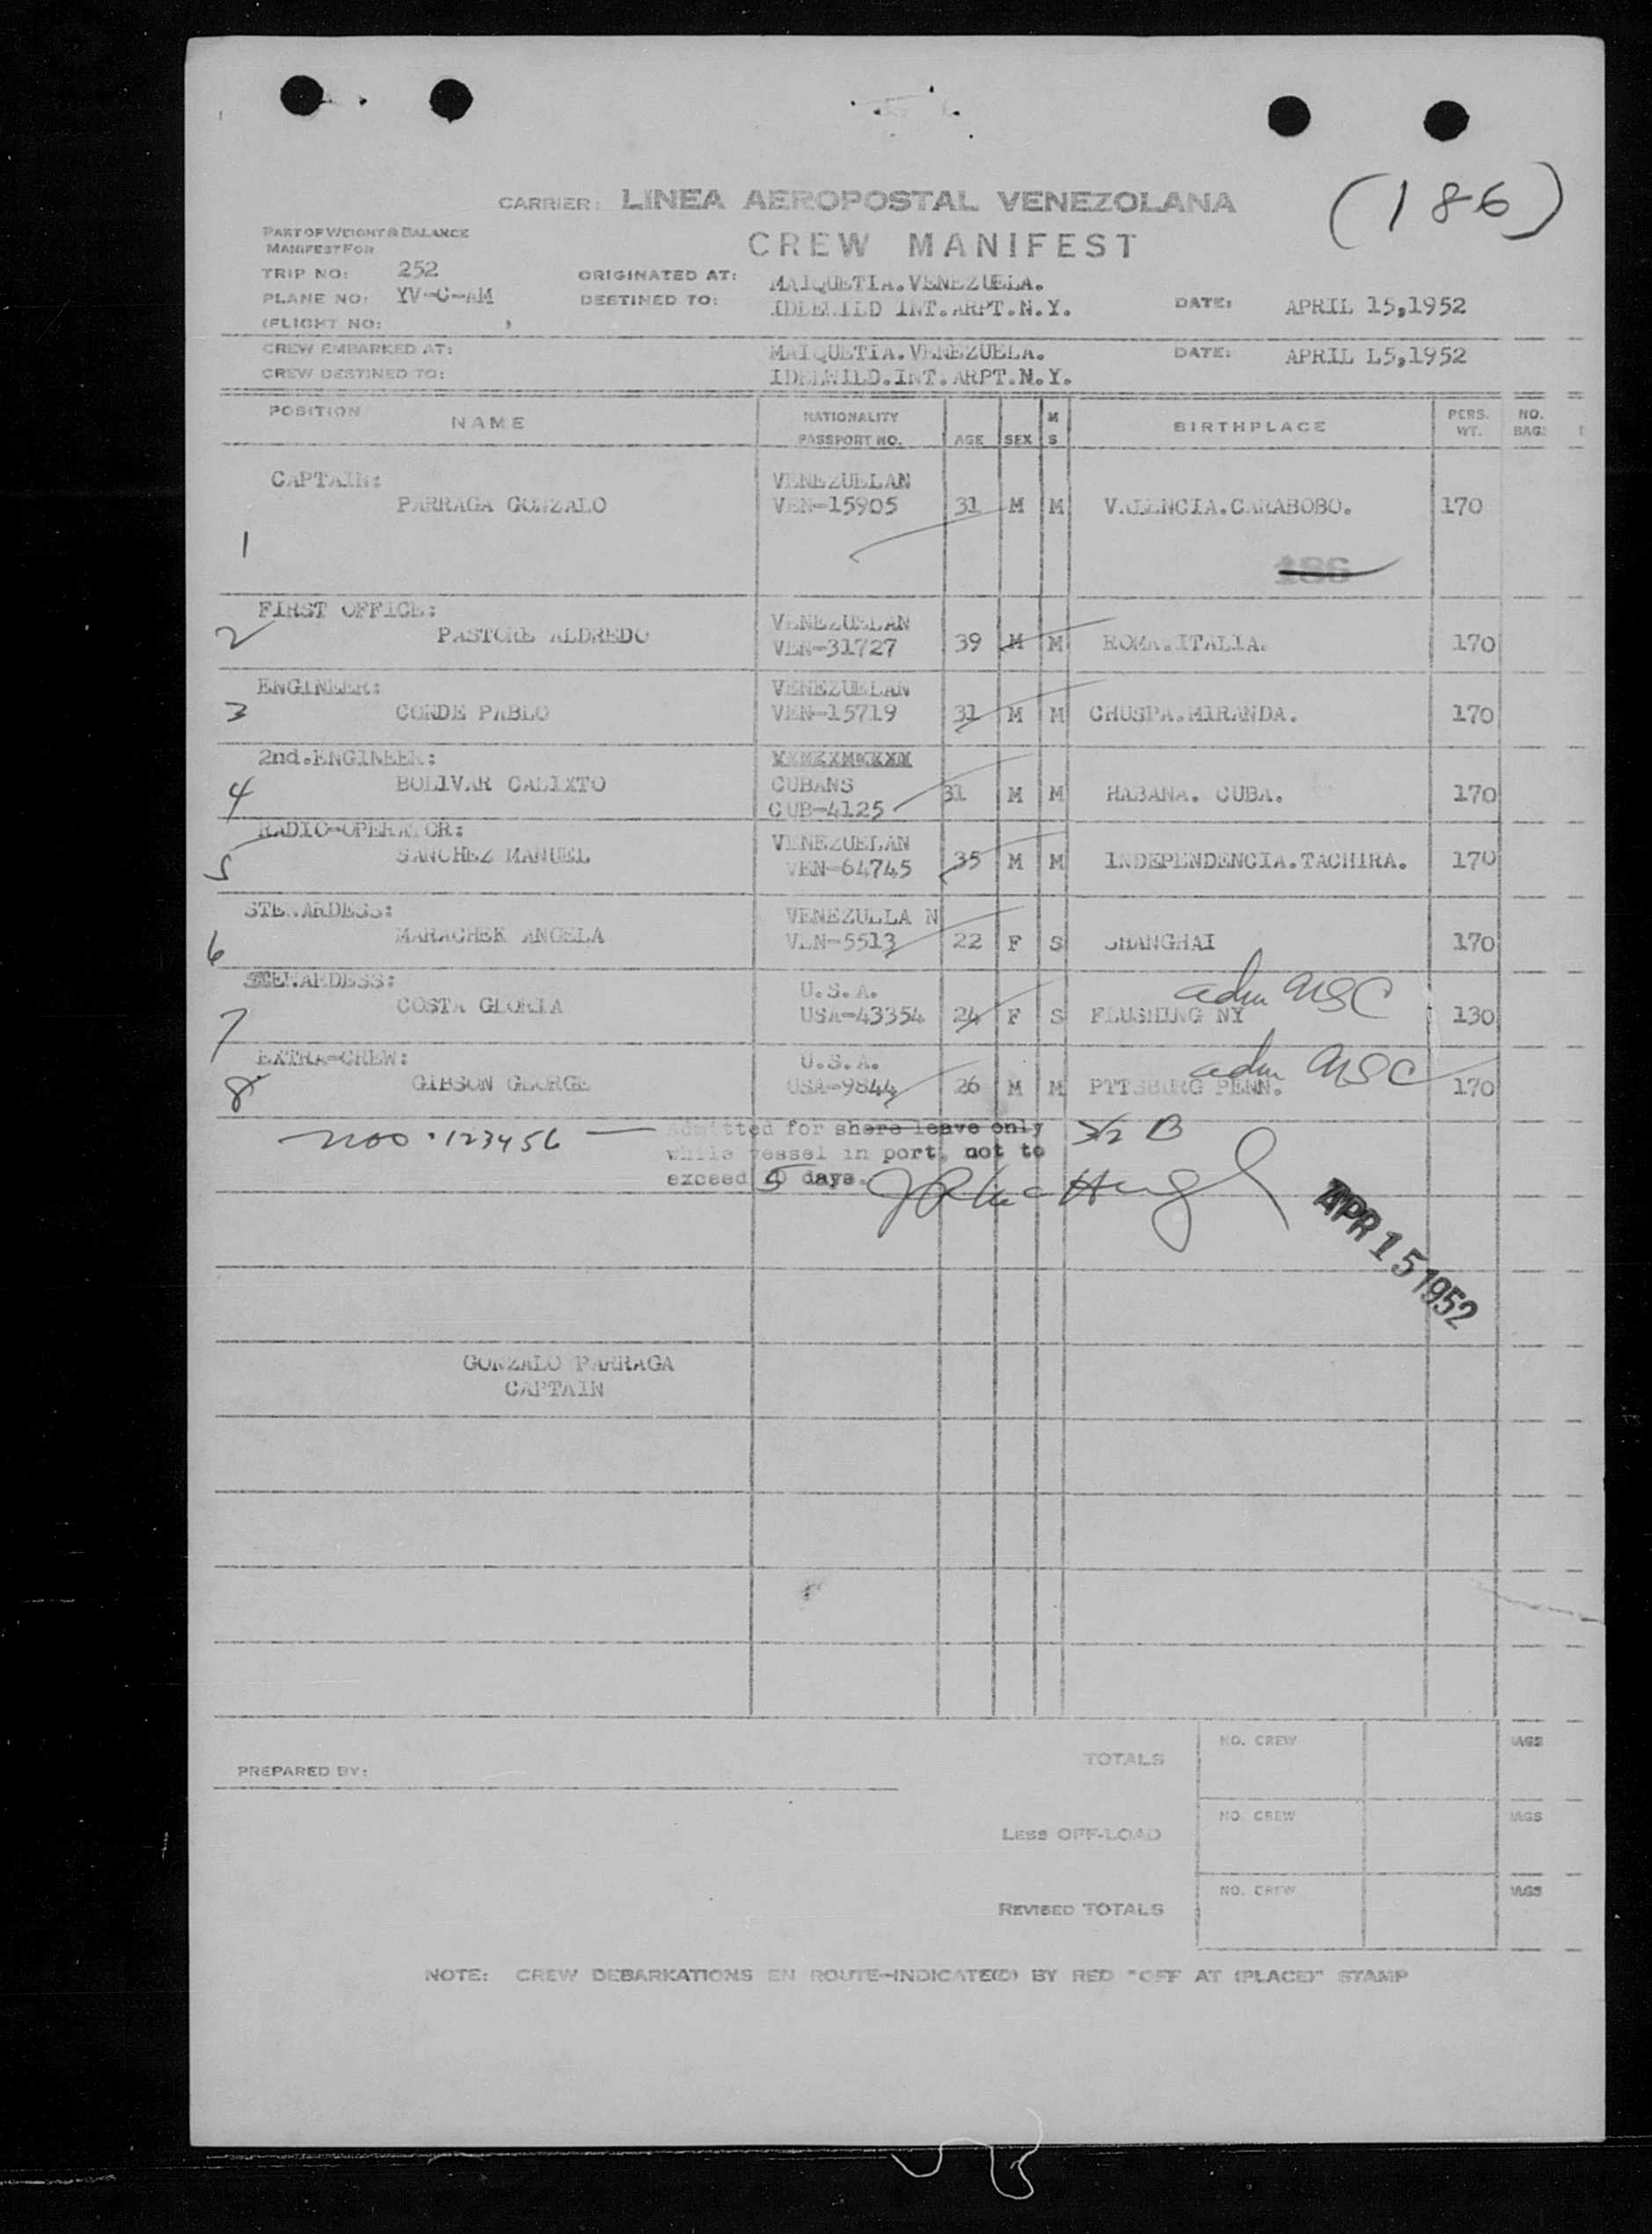 (186)
CARRIER: LINEA AEROPOSTAL VENEZOLANA
PART OF WEIGHT & BALANCE
MANIFEST FOR
CREW MANIFEST
TRIP NO: 252 ORIGINATED AT: MAIQUETIA.VENEZUELA.
PLANE NO: YV-C-AM DESTINED TO: IDLEWILD INT.ARPT.N.Y. DATE: APRIL 15,1952
(FLIGHT NO: )
CREW EMBARKED AT: MAIQUETIA.VENEZUELA. DATE: APRIL L5,1952
CREW DESTINED TO: IDELWILD.INT.ARPT.N.Y.
POSITION NAME NATIONALITY PASSPORT NO. AGE SEX M S BIRTHPLACE PERS. WT. NO. BAGS
CAPTAIN: VENEZUELAN
PARRAGA GONZALO VEN-15905 31 M M VALENCIA.CARABOBO. 170
1
186
FIRST OFFICE: VENEZUELAN
2 PASTORE ALDREDO VEN-31727 39 M M ROMA.ITALIA. 170
ENGINEER: VENEZUELAN
3 CONDE PABLO VEN-15719 31 M M CHUSPA.MIRANDA. 170
2nd.ENGINEER:
4 BOLIVAR CALIXTO CUBANS 31 M M HABANA. CUBA. 170
CUB-4125
RADIO-OPERATOR: VENEZUELAN
5 SANCHEZ MANUEL VEN-64745 35 M M INDEPENDENCIA.TACHIRA. 170
STEWARDESS: VENEZUELA N
6 MARACHEK ANGELA VEN-5513 22 F S SHANGHAI 170
STEWARDESS: U.S.A. adm USC
7 COSTA GLORIA USA-43354 24 F S FLUSHING NY 130
EXTRA-CREW: U.S.A. adm USC
8 GIBSON GEORGE USA-9844 26 M M PTTSBURG PENN. 170
nos. 123456 — Admitted for shore leave only
while vessel in port, not to
exceed 5 days.
APR 15 1952
GONZALO PARRAGA
CAPTAIN
PREPARED BY:
TOTALS NO. CREW AGS
LESS OFF-LOAD NO. CREW AGS
REVISED TOTALS NO. CREW AGS
NOTE: CREW DEBARKATIONS EN ROUTE-INDICATE(D) BY RED "OFF AT (PLACE)" STAMP